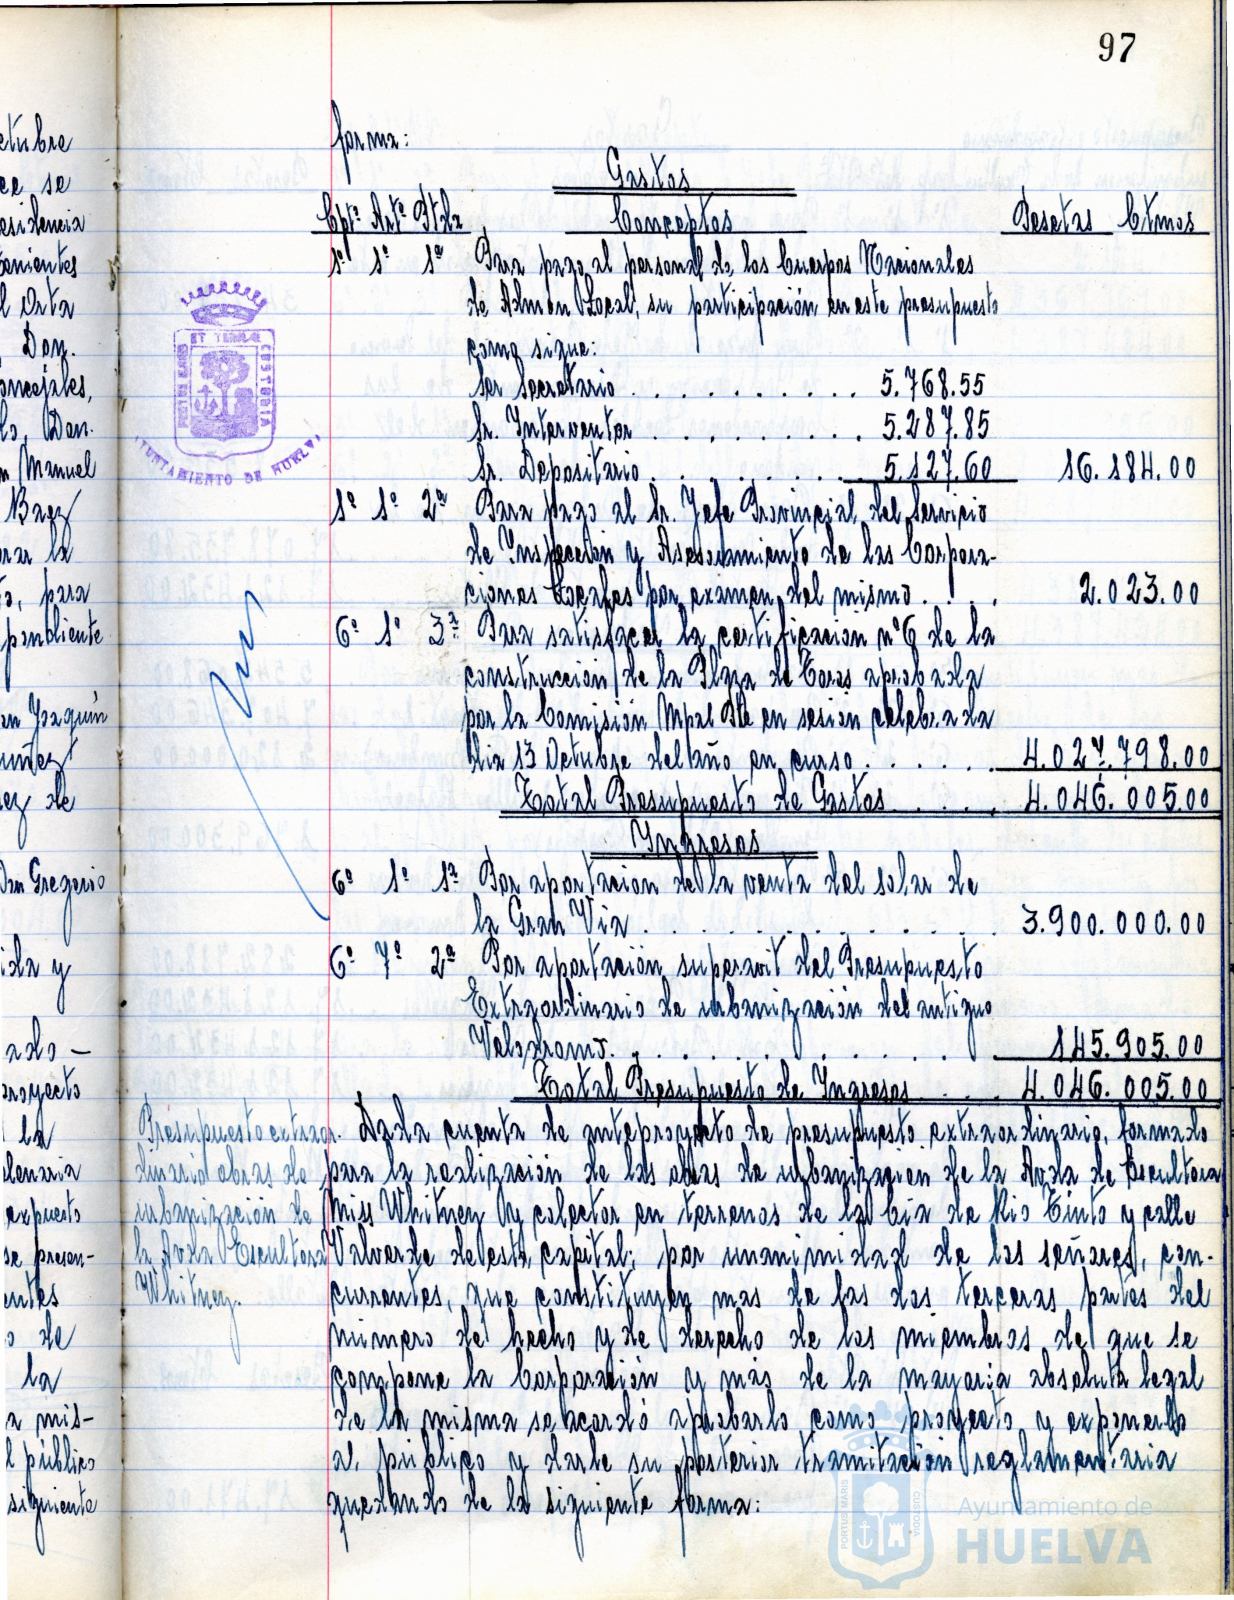 97
etubre
ce se
esidencia
enientes
l Orta
Don.
oncejales,
lo, Don.
n Manuel
Baez
rar la
to, para
pondiente
on Joaquin
uñez
ez de
Don Gregorio
ida y
ado -
proyecto
la
denaria
expuesto
se presen-
entes
o de
la
a mis-
l público
siguiente
PORTUS MARIS ET TERRAE CUSTODIA
AYUNTAMIENTO DE HUELVA
forma:
Gastos
Cptº Artº Ptda Conceptos Pesetas Ctmos
1º 1º 1ª Para pago al personal de los Cuerpos Nacionales
de Admon Local, su participación en este presupuesto
como sigue:
Sr Secretario . . . . . . . . . . . 5.768.55
Sr. Interventor . . . . . . . . . . 5.287.85
Sr. Depositario . . . . . . . . . . 5.127.60 16.184.00
1º 1º 2ª Para pago al Sr. Jefe Provincial del Servicio
de Inspección y Asesoramiento de las Corpora-
ciones Locales por examen del mismo . . . . 2.023.00
6º 1º 3ª Para satisfacer la certificación nº 6 de la
construcción de la Plaza de Toros aprobada
por la Comisión Mpal Pte en sesión celebrada
dia 13 Octubre del año en curso . . . . . . 4.027.798.00
Total Presupuesto de Gastos . . . . 4.046.005.00
Ingresos
6º 1º 1ª Por aportacion de la venta del solar de
la Gran Via . . . . . . . . . . . . 3.900.000.00
6º 7º 2ª Por aportación superavit del Presupuesto
Extraordinario de urbanización del antiguo
Velodromo. . . . . . . . . . . . 145.905.00
Total Presupuesto de Ingresos . . . . 4.046.005.00
Presupuesto extraor-
dinario obras de
urbanización de
la Avda Escultora
Whitney.
Dada cuenta de anteproyecto de presupuesto extraordinario, formado
para la realización de las obras de urbanización de la Avda de Escultora
Miss Whitney y colector en terrenos de la Cia de Rio Tinto y calle
Valverde de esta capital; por unanimidad de los señores, con-
currentes, que constituyen mas de las dos terceras partes del
número de hecho y de derecho de los miembros de que se
compone la Corporación y más de la mayoría absoluta legal
de la misma se acordó aprobarlo como proyecto y exponerlo
al público y darle su posterior tramitación reglamentaria
quedando de la siguiente forma:
PORTUS MARIS CUSTODIA
Ayuntamiento de
HUELVA